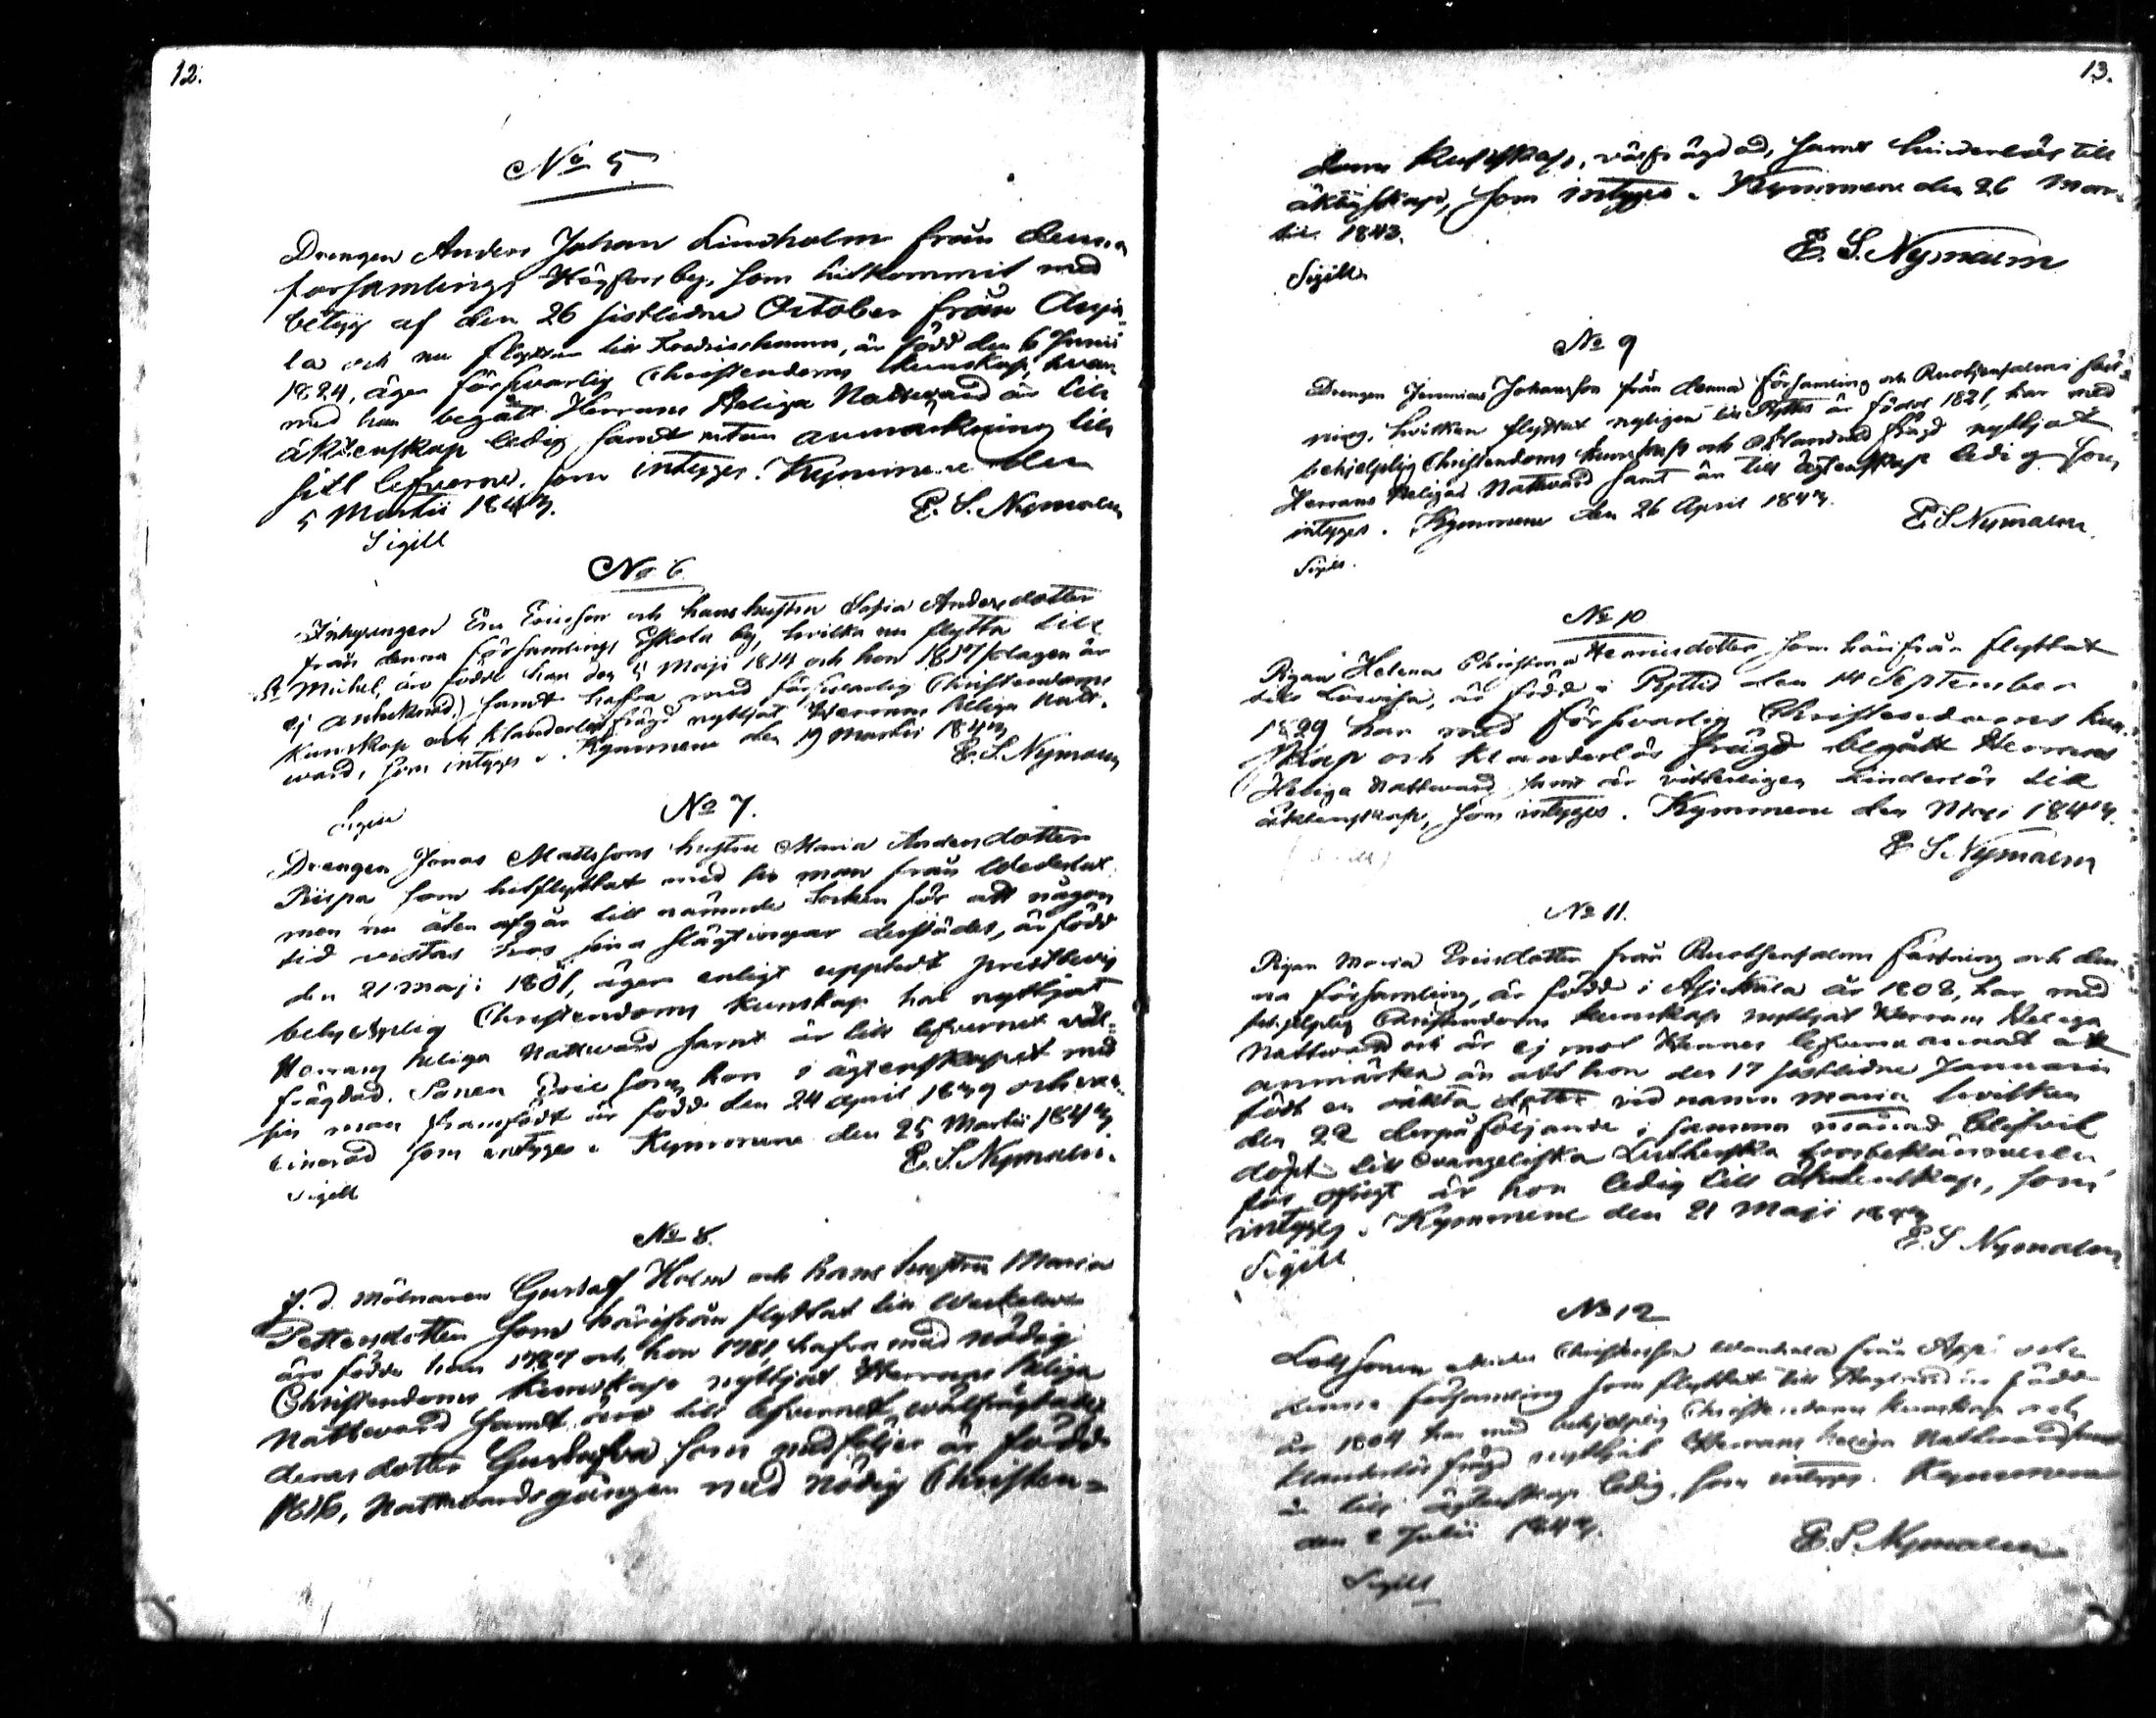 12.
No 5
Drengen Anders Johan Lindholm från denna
församlings Högfors by, som hitkommit med
betyg af den 26 sistlidne October från Anja-
la och nu flyttar till Fredrikshamn, är född den 6 Junii
1824, äger försvarlig Christendoms kunskap, hvar-
med han begått Herrans Heliga Nattvard är till
äktenskap ledig samt utan anmärkning till
sitt lefverne, som intygas. Kymmene den
5 Martii 1843.
E. S. Nymalm
Sigill
No 6.
Inhysingen Eric Ericsson och hans hustru Sofia Andersdotter
från denna församlings Eskola by, hvilka nu flytta till
St Michel, äro födde han den 5 Maji 1814 och hon 1817 (dagen är
ej antecknad) samt hafva med försvarlig Christendoms
kunskap och klanderlös frägd nyttjat Herrans heliga natt-
ward, som intygas. Kymmene den 19 Martii 1843
E. S. Nymalm
Sigill
No 7.
Drengen Jonas Mattssons hustru Maria Andersdotter
Piispa som hitflyttat med sin man från
men nu åter afgår till nämnde Socken för att någon
tid vistas hos sina slägtingar derstädes, är född
den 21 maji 1801, äger enligt uppledt prestbevis
behjelplig Christendoms kunskap har nyttjat
Herrans heliga Nattward samt är till lefvernet väl-
frägdad. Sonen Eric som hon i ägtenskapet med
sin man framfödt är född den 24 april 1839 och vac-
cinerad som intygas. Kymmene den 25 Martii 1843
E. S. Nymalm.
Sigill
No 8.
f. d. Mölnaren Gustaf Holm och hans hustru Maria
Pettersdotter som härifrån flyttat till
äro födde han 1787 och hon 1781, hafva med nödig
Christendoms kunskap nyttjat Herrans heliga
Nattward samt äro till lefvernet
deras dotter Gustafva som medföljer är född
1816, Nattwardsgången med nödig Christen-
13.
doms kunskap, välfrägdad, samt hinderlös till
äktenskap, som intygas. Kymmene den 26 Mar-
tii 1843.
E. S. Nymalm
Sigill
No 9
Drengen Jeremias Johansson från denna församling och Ruotsinsalmi fäst-
ning, hvilken flyttat nyligen till Pyttis är född 1821, har med
behjelplig Christendoms kunskap och oklandrad frägd nyttjat
Herrans Heliga Nattvard samt är till ägtenskap ledig som
intygas. Kymmene den 26 April 1843.
E. S Nymalm.
Sigill.
No 10
Pigan Helena Christina Henricsdotter som härifrån flyttat
till Lovisa, är född i Pyttis den 14 September
1829 har med försvarlig Christendoms kun-
skap och klanderlös frägd begått Herrans
Heliga Nattward samt är hinderlös till
äktenskap, som intygas. Kymmene den Maji 1843.
E. S. Nymalm
No 11.
Pigan Maria Ericsdotter från Ruotsinsalmi fästning och den-
na församling, är född i Asikkala år 1808, har med
behjelplig Christendoms kunskap nyttjat Herrans Heliga
Nattward och är ej mot Hennes lefverne annat att
anmärka än att hon den 17 sistlidne Januarii
födt en oäkta dotter vid namn Maria hvilken
den 22 derpåföljande i samma månad blifvit
döpt till Evangeliska Lutherska trosbekännelsen,
för öfrigt är hon ledig till äktenskap, som
intygas. Kymmene den 21 Maji 1843
E. S Nymalm
Sigill
No 12
Christersson från och
denna församling som flyttat till Högland är född
år 1804 har med behjelplig Christendoms kunskap och
klanderlös frägd nyttjat Herrans heliga Nattward samt
är till ägtenskap ledig, som intygas. Kymmene
den 2 Julii 1843.
E. S. Nymalm
Sigill